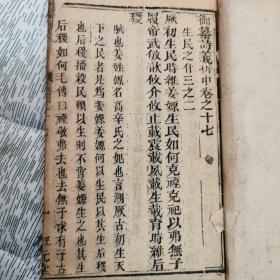 御纂詩義折中卷之十七
生民之什三之二
厥初生民時維姜嫄生民如何克禋克祀以弗無子
履帝武敏歆攸介攸止載震載夙載生載育時維后
稷
賦也姜姓嫄名高辛氏之妃也言溯厥古初生天
下之民者是為姜嫄姜嫄何以生民以其生后稷
也后稷播穀民賴以生則不啻姜嫄生之矣姜嫄生
后稷如何毛傳曰禋敬弗去也去無子求有子古